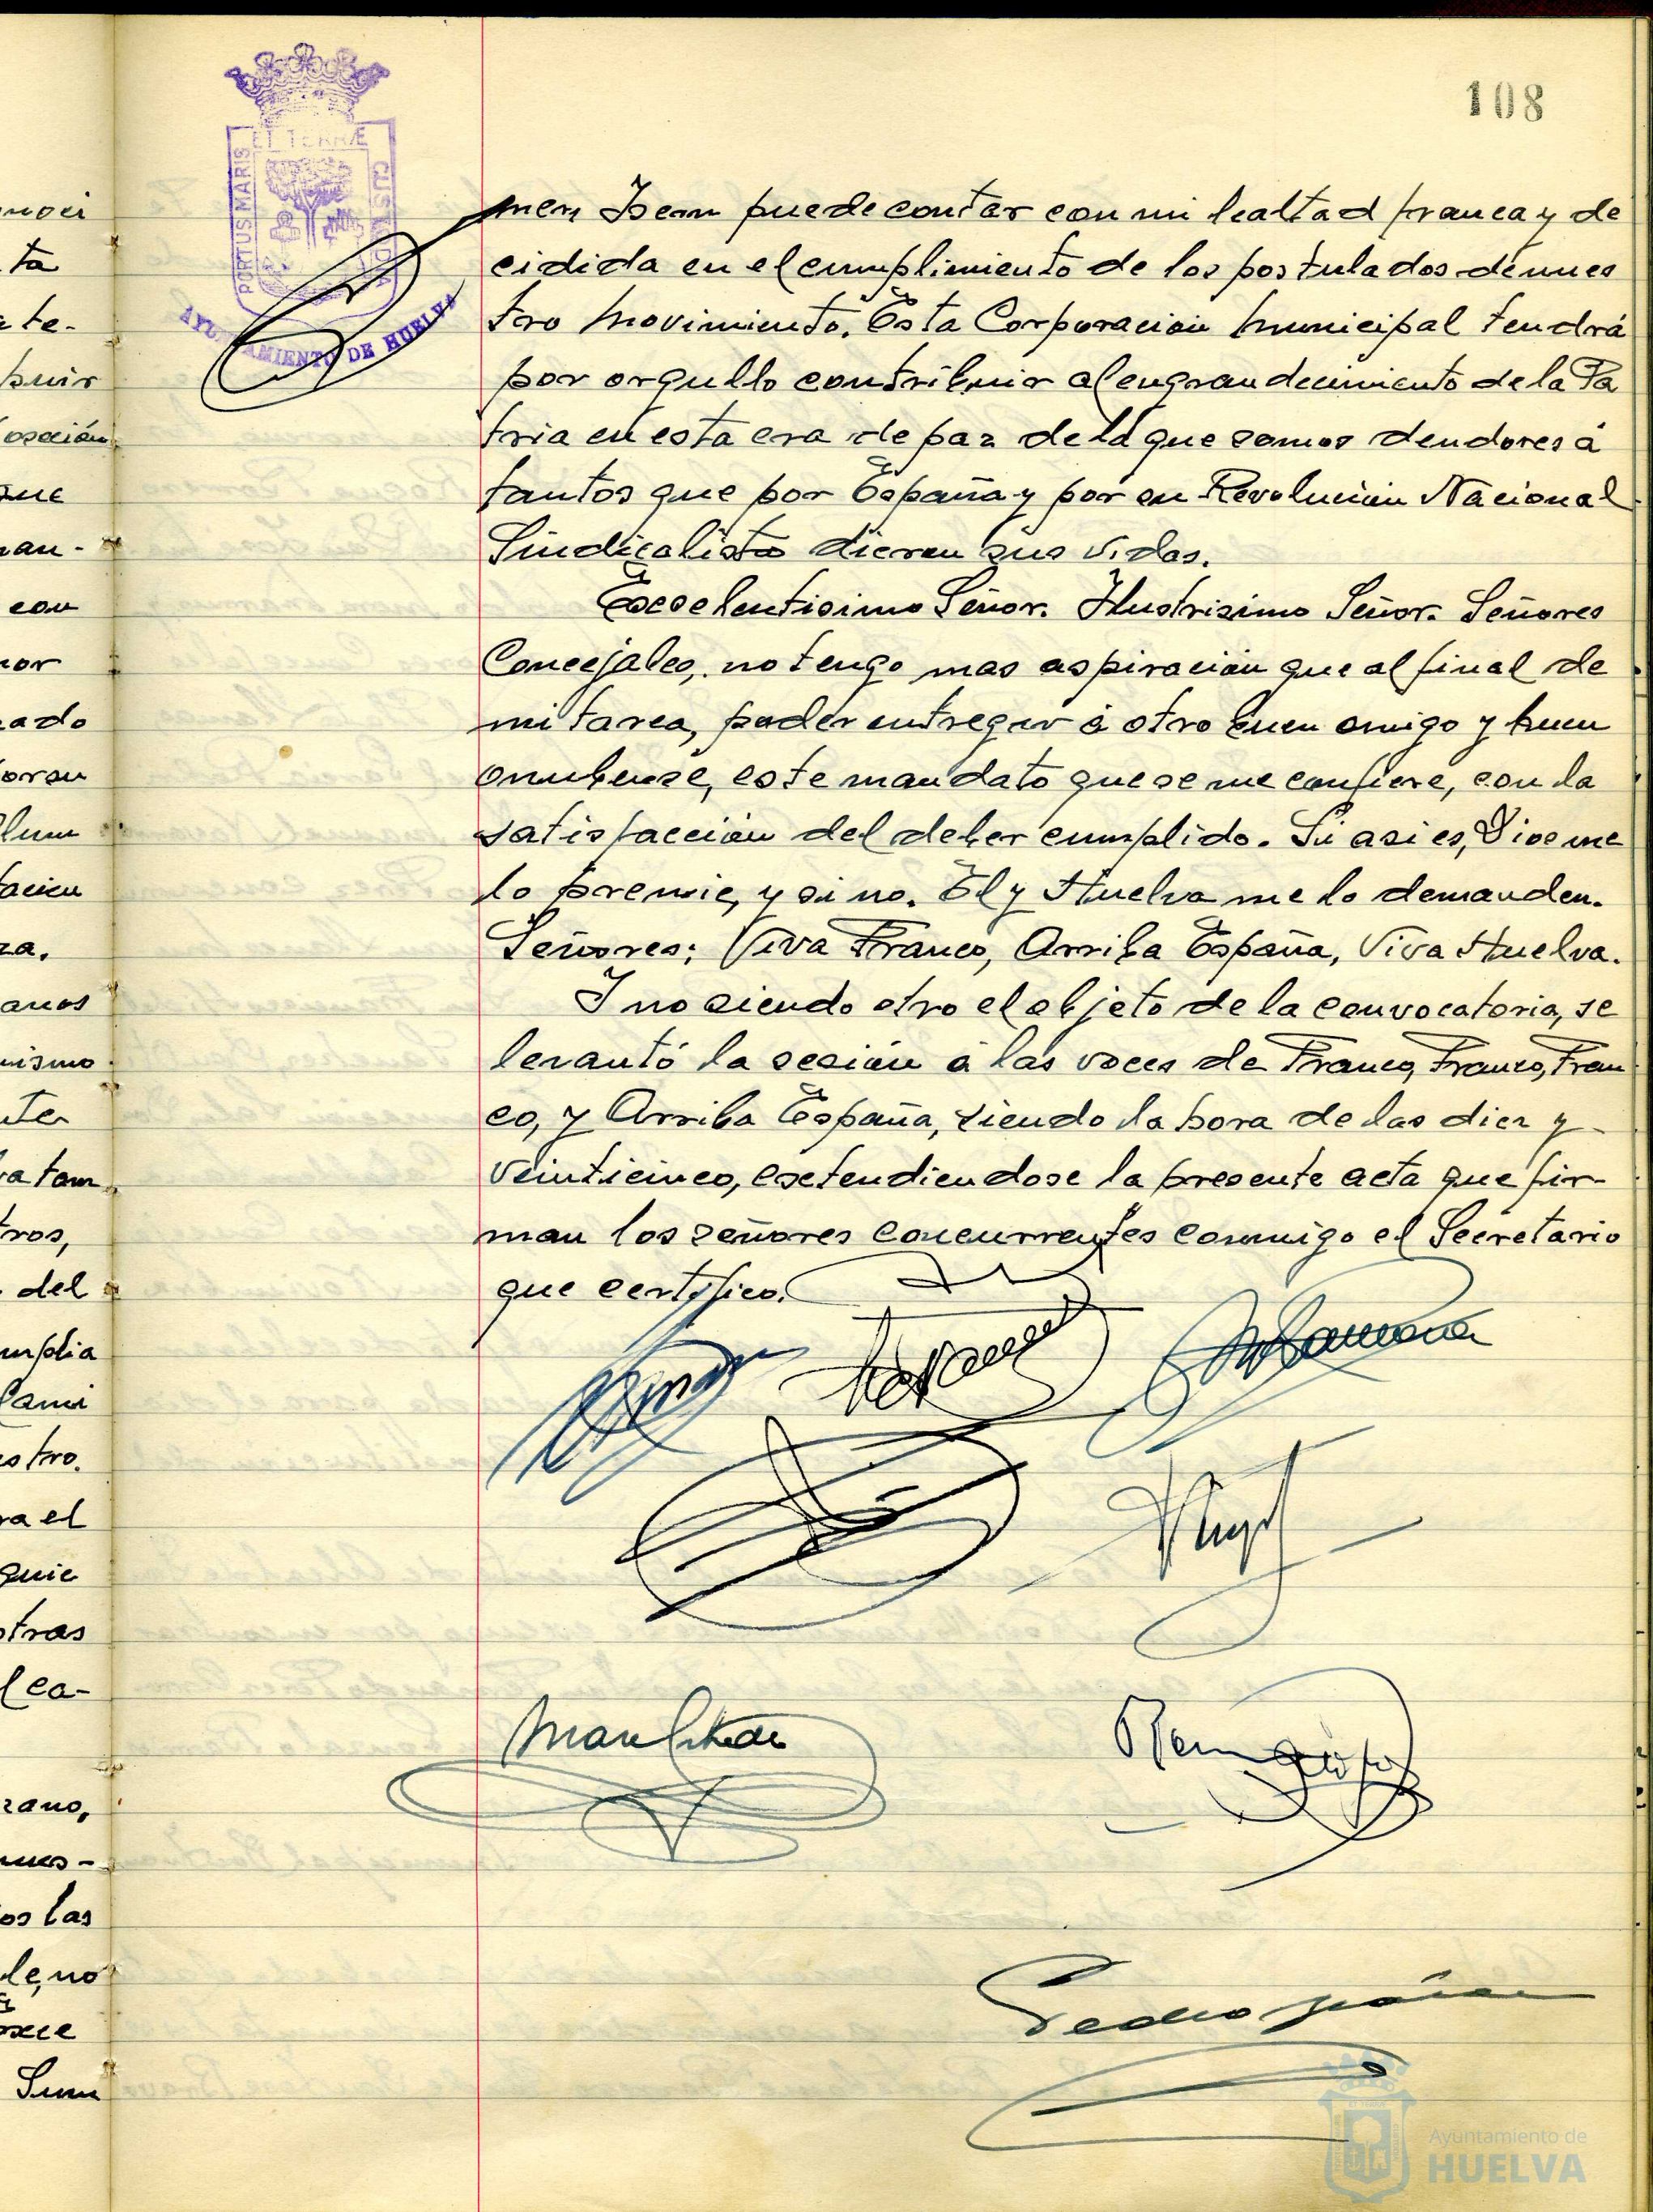 108
ET TERRÆ
PORTUS MARIS
CUSTODIA
AYUNTAMIENTO DE HUELVA
puede contar con mi lealtad franca y de
cidida en el cumplimiento de los postulados de nues
tro Movimiento. Esta Corporación Municipal tendrá
por orgullo contribuir al engrandecimiento de la Pa
tria en esta era de paz de la que somos deudores á
tantos que por España y por su Revolución Nacional
Sindicalista dieron sus vidas.
Excelentisimo Señor. Ilustrisimo Señor. Señores
Concejales, no tengo mas aspiración que al final de
mi tarea, poder entregar á otro buen amigo y buen
onubense, este mandato que se me confiere, con la
satisfacción del deber cumplido. Si asi es, Dios me
lo premie, y si no. El y Huelva me lo demanden.
Señores: Viva Franco, Arriba España, Viva Huelva.
I no siendo otro el objeto de la convocatoria, se
levantó la sesión á las voces de Franco, Franco, Fran
co, y Arriba España, siendo la hora de las diez y
veinticinco, extendiendose la presente acta que fir-
man los señores concurrentes conmigo el Secretario
que certifico.
Pedro
ta
te-
que
con
ado
za.
anos
ros,
del
ra el
otras
zano,
os las
le, no
Ayuntamiento de
HUELVA